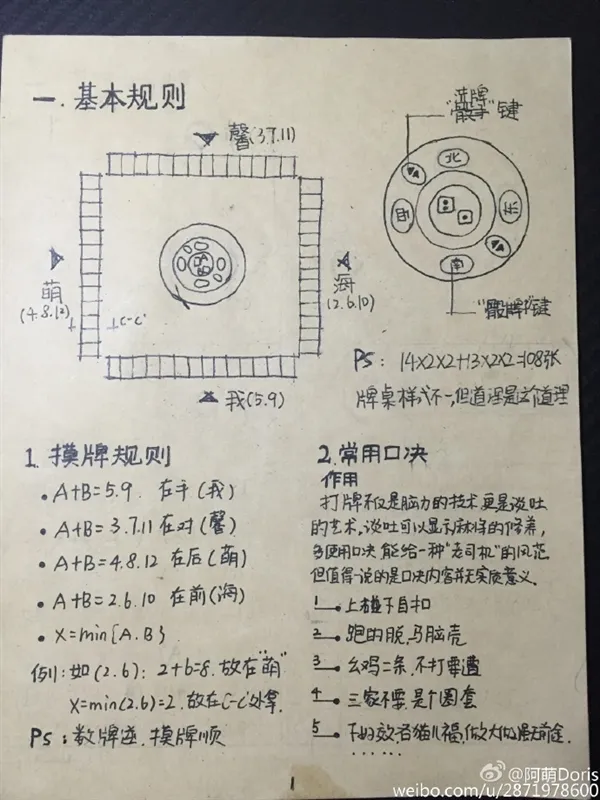 一.基本规则
馨(3.7.11)
萌
(4.8.12)
C-C'
海
(2.6.10)
我(5.9)
"洗牌"
"骰子"键
北
东
南
西
"骰牌"键
PS: 14×2×2+13×2×2=108张
牌桌样式不一,但道理是这个道理
1.摸牌规则
·A+B=5.9 在手(我)
·A+B=3.7.11 在对(馨)
·A+B=4.8.12 在后(萌)
·A+B=2.6.10 在前(海)
·X=min{A.B}
例:如(2.6):2+6=8.放在"萌"
X=min(2.6)=2.放在C-C'处拿.
PS:数牌逆.摸牌顺
2.常用口决
作用
打牌不仅是脑力的技术更是谈吐
的艺术,谈吐可以显示麻将的修养,
多使用口决能给一种"老司机"的风范
但值得一说的是口决内容并无实质意义.
1 上碰下自扣
2 跑的脱,马脑壳
3 幺鸡二条,不打要遭
4 三家不要,是个圈套
5 下
1
@阿萌Doris
weibo.com/u/2871978600